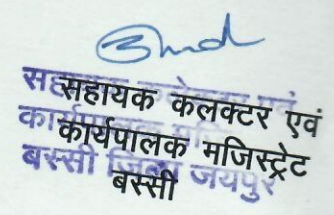 सहायक कलक्टर एवं
कार्यपालक मजिस्ट्रेट
बस्सी जिला जयपुर
सहायक कलक्टर एवं
कार्यपालक मजिस्ट्रेट
बस्सी